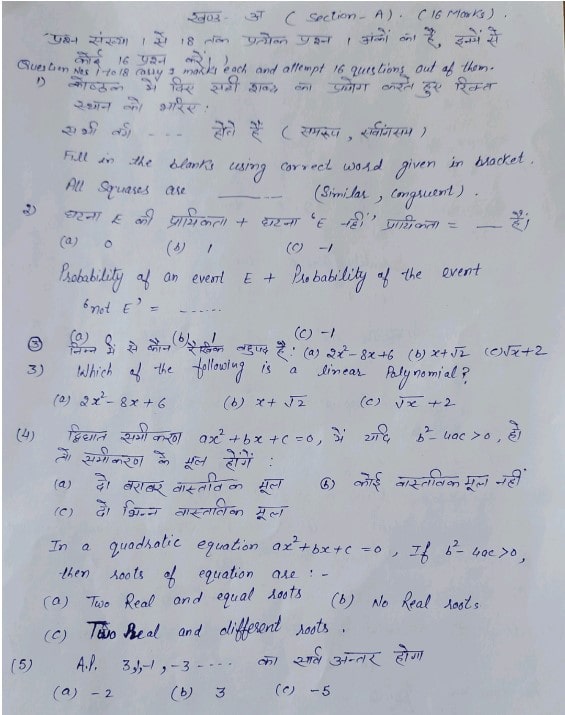 खण्ड- अ ( Section - A ) . ( 16 Marks ) .
प्रश्न संख्या 1 से 18 तक प्रत्येक प्रश्न 1 अंकों का है, इनमें से
कोई 16 प्रश्न करें।
Question Nos 1 to 18 carry marks each and attempt 16 questions out of them.
1) कोष्ठक में दिए सही शब्द का प्रयोग करते हुए रिक्त
स्थान को भरिए :
सभी वर्ग - - - - होते हैं ( समरूप , सर्वांगसम )
Fill in the blanks using correct word given in bracket.
All Squares are ______ (Similar , Congruent) .
2) घटना E की प्रायिकता + घटना 'E नहीं' प्रायिकता = __ है।
(a) 0 (b) 1 (c) -1
Probability of an event E + Probability of the event
'not E' = - - - - - -
(a) 0 (b) 1 (c) -1
③ निम्न में से कौन रैखिक बहुपद है : (a) 2x²- 8x+6 (b) x+√2 (c) √x+2
3) Which of the following is a linear Polynomial ?
(a) 2x² - 8x + 6 (b) x + √2 (c) √x + 2
(4) द्विघात समीकरण ax² + bx + c = 0, में यदि b²- 4ac > 0, हो
तो समीकरण के मूल होंगे :
(a) दो बराबर वास्तविक मूल (b) कोई वास्तविक मूल नहीं
(c) दो भिन्न वास्तविक मूल
In a quadratic equation ax²+bx+c = 0 , If b²- 4ac >0,
then roots of equation are : -
(a) Two Real and equal roots (b) No Real roots
(c) Two Real and different roots .
(5) A.P. 3,1,-1 , -3 - - - - का सार्व अन्तर होगा
(a) - 2 (b) 3 (c) -5